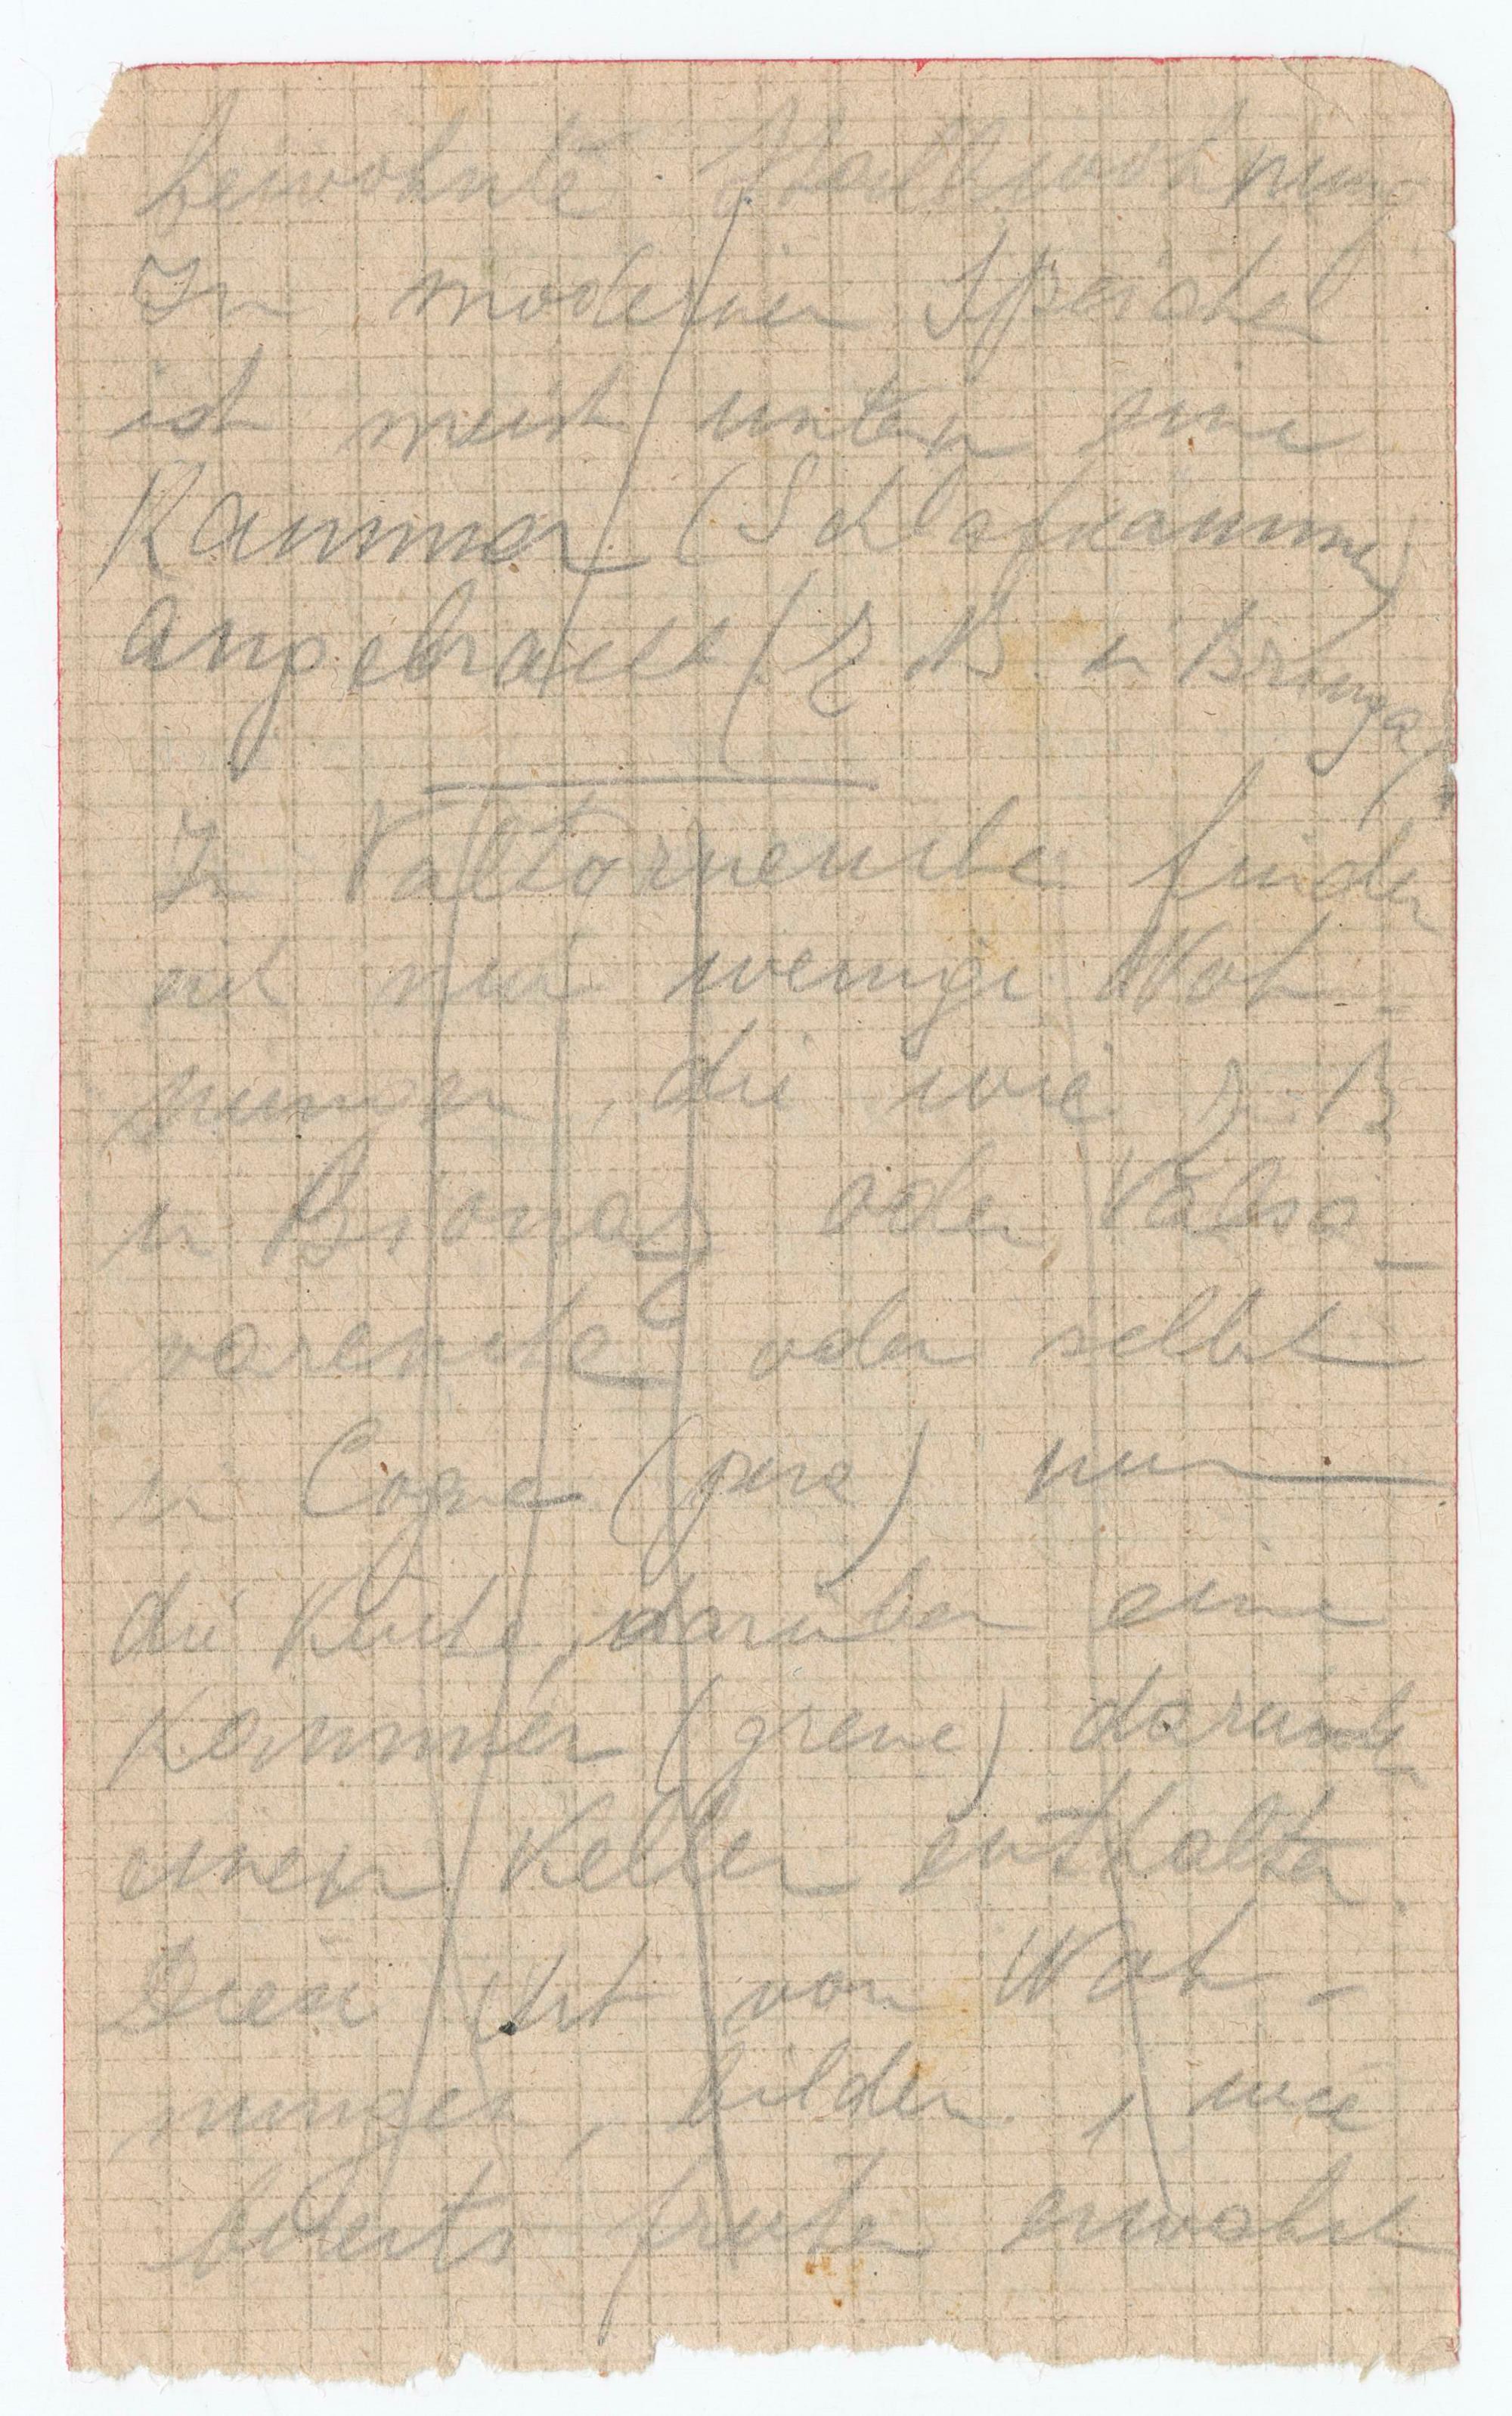 bewohnte Stallwohnung
In modernen Speicher
ist meist unten eine
Kammer (Schlafkammer)
angebracht (z. B. in Brenga
In Valtornenche finden
sich nur wenige Woh-
nungen, die wie z. B.
in Bionaz oder Valsa-
varenche oder selbst
in Cogne (pure) nur
die Küche, darüber eine
Kammer (grene) darunter
einen Keller enthalten.
Diese Art von Woh-
nungen, bilden, wie
bereits früher erwähnt